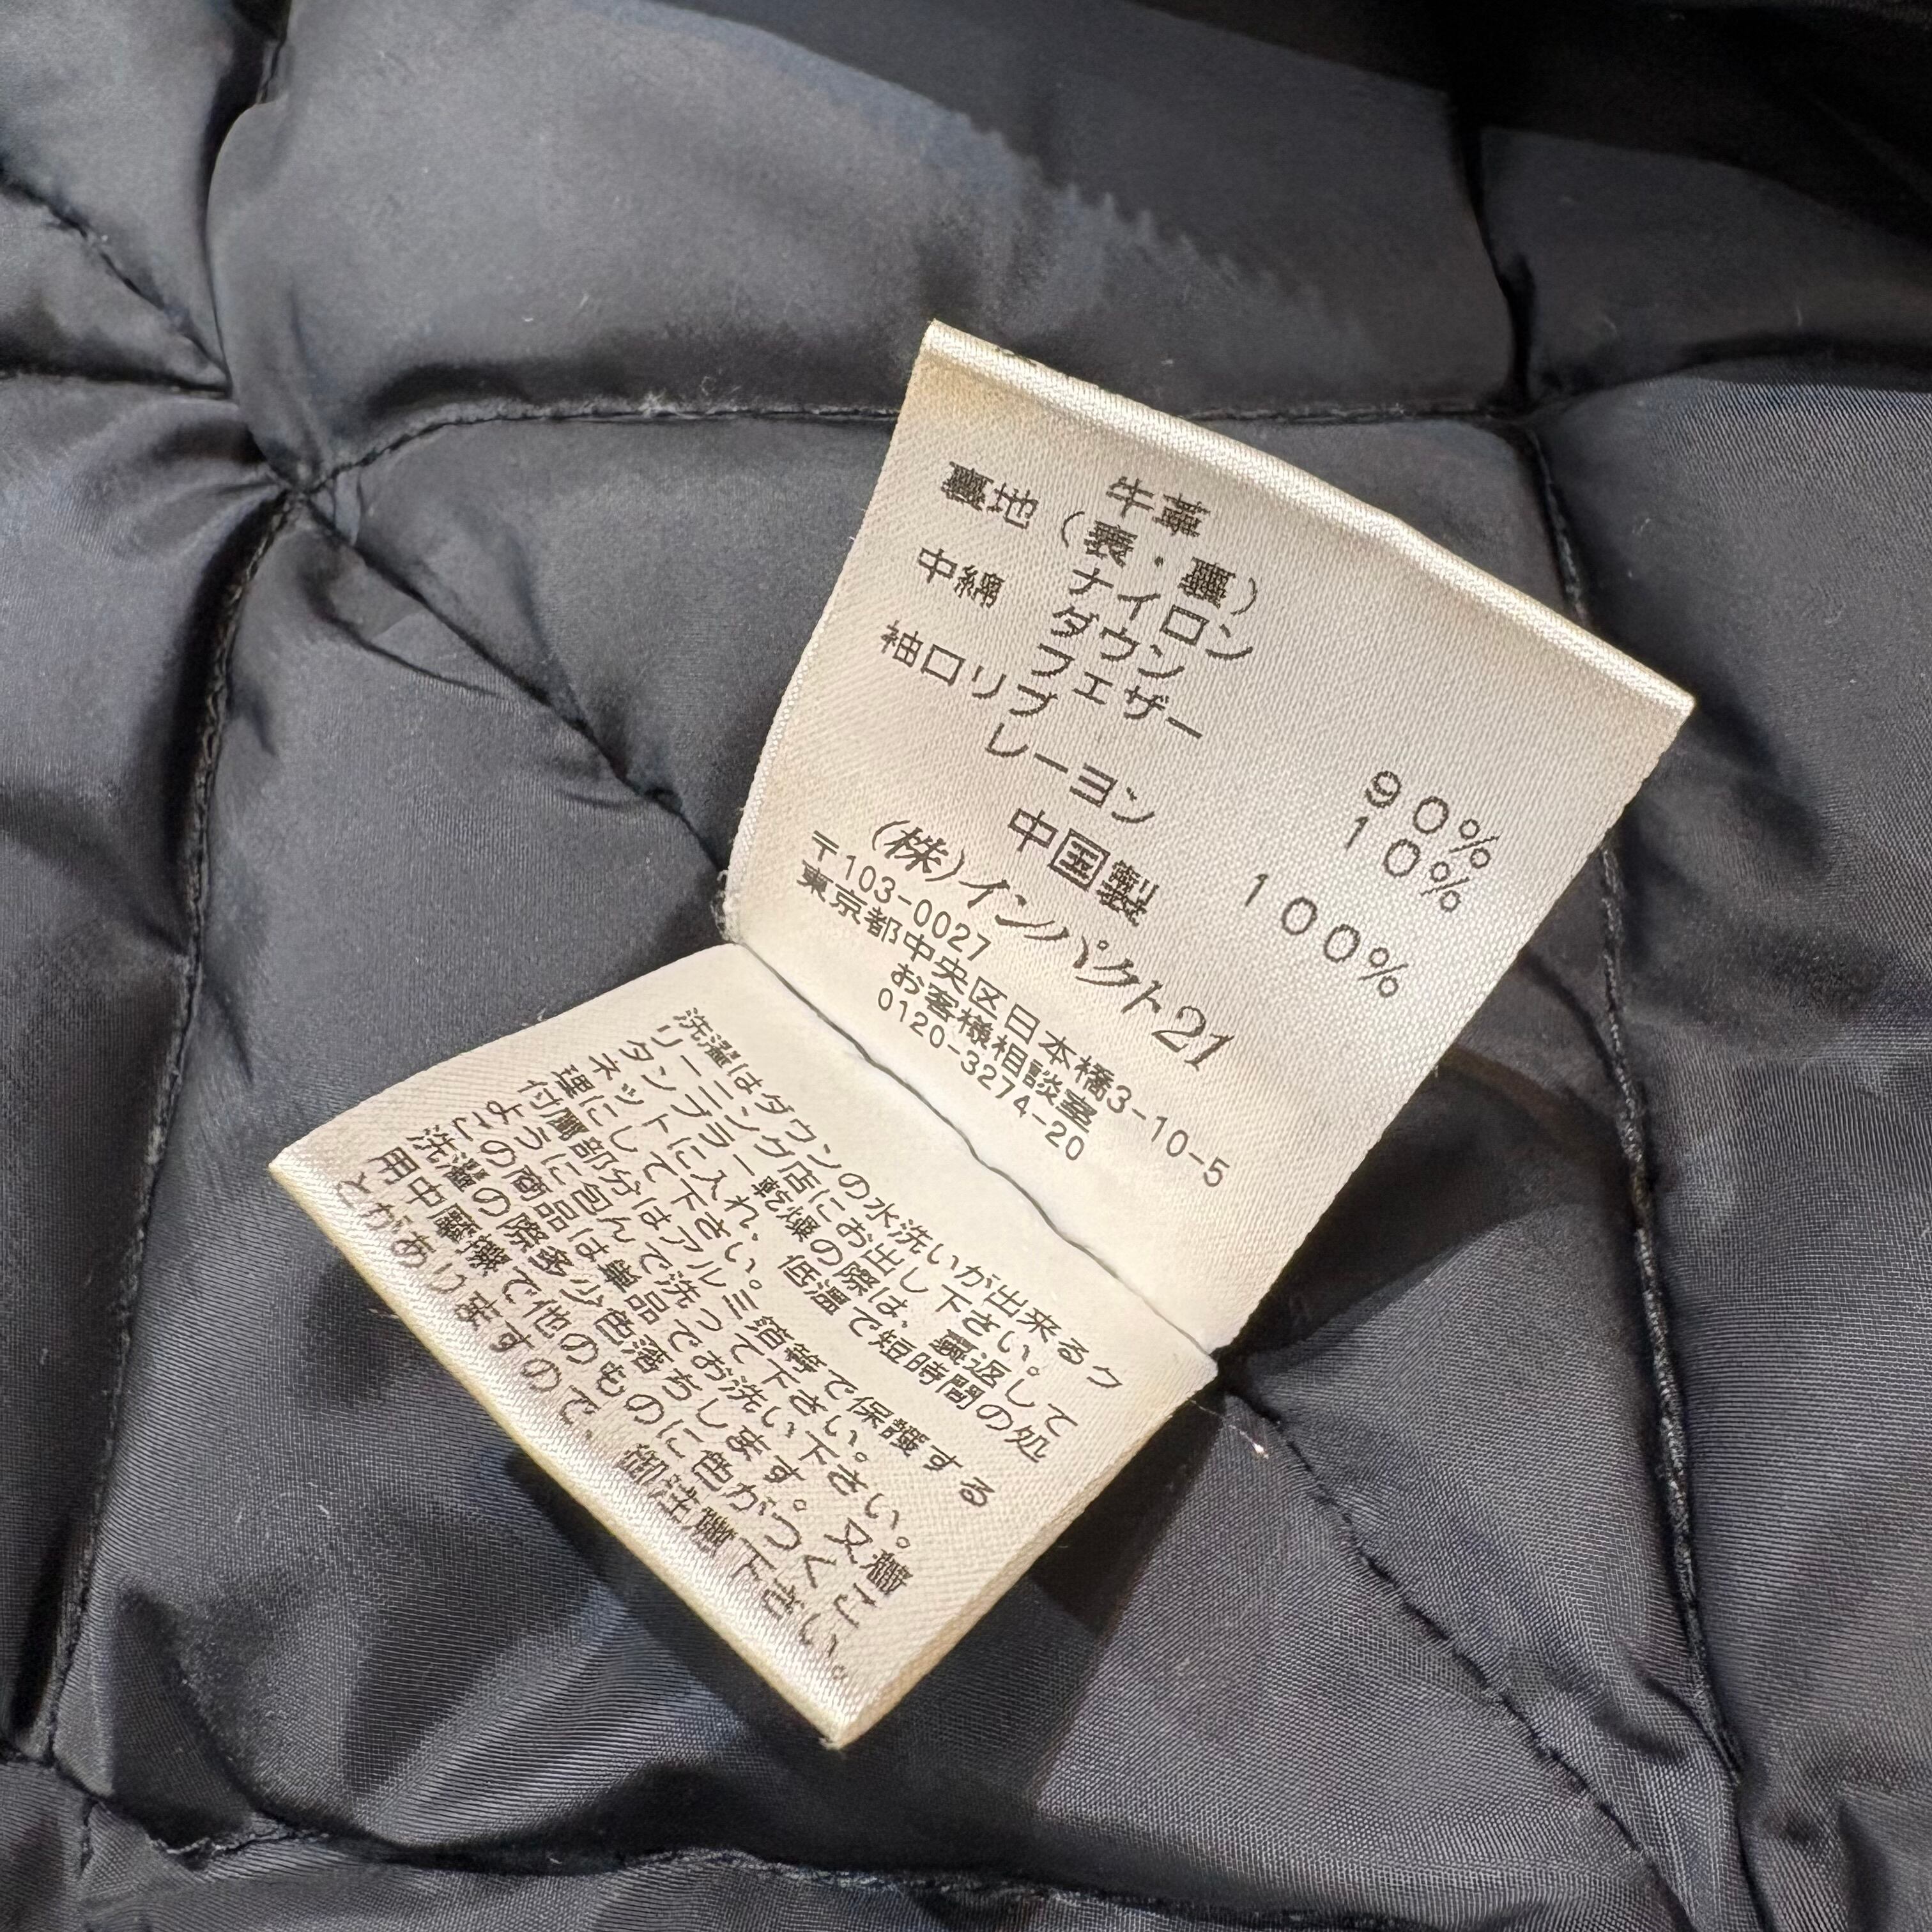 牛革
裏地(表・裏)
ナイロン
中綿 ダウン 90%
フェザー 10%
袖口リブ
レーヨン 100%
中国製
(株)インパクト21
〒103-0027
東京都中央区日本橋3-10-5
お客様相談室
0120-3274-20
洗濯はダウンの水洗いが出来るク
リーニング店にお出し下さい。
タンブラー乾燥の際は、裏返して
ネットに入れ、低温で短時間の処
理にして下さい。
付属部分はアルミ箔等で保護する
ように包んで洗って下さい。
この商品は単品でお洗い下さい。
洗濯の際多少色落ちします。又着
用中摩擦で他のものに色がつくこ
とがありますので、御注意下さい。